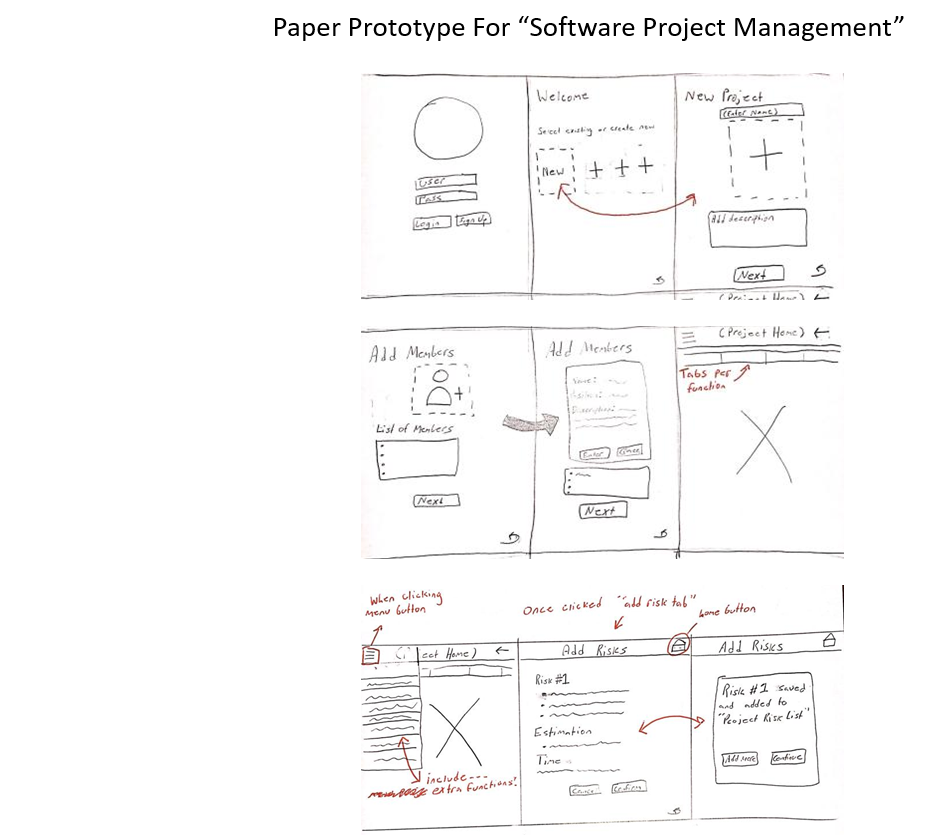 Paper Prototype For “Software Project Management”
User
Pass
Login
Sign Up
Welcome
Select existing or create new
New
New Project
(Enter Name)
Add description
Next
(Project Home)
Add Members
List of Members
Next
Add Members
Name:
Description:
Enter
Cancel
Next
(Project Home)
Tabs per
function
When clicking
Menu button
ect Home)
include---
extra functions!
Once clicked "add risk tab"
home button
Add Risks
Risk #1
Estimation
Time
Cancel
Confirm
Add Risks
Risk #1 saved
and added to
"Project Risk List"
Add More
Continue